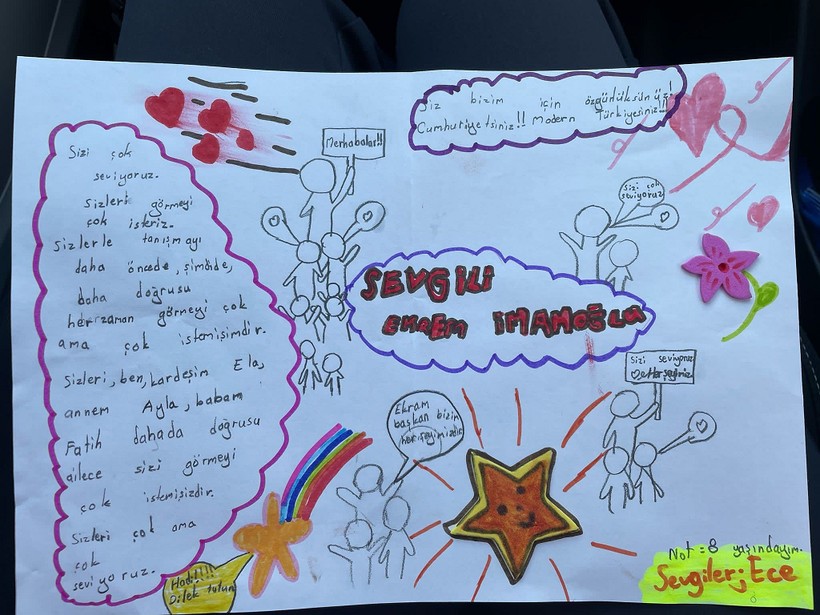 Siz bizim için özgürlüksünüz!
Cumhuriyetsiniz!! Modern Türkiyesiniz!!!
Merhabalar!!
Sizi çok
seviyoruz.
Sizleri görmeyi
çok isteriz.
Sizlerle tanışmayı
daha öncede, şimdide,
daha doğrusu
herzaman görmeyi çok
ama çok istemişimdir.
Sizleri, ben, kardeşim Ela,
annem Ayla, babam
Fatih dahada doğrusu
ailece sizi görmeyi
çok istemişizdir.
Sizleri çok ama
çok
seviyoruz.
Sizi çok
seviyoruz
SEVGİLİ
EKREM İMAMOĞLU
Sizi seviyoruz
Herşeyimiz
Ekram
başkan bizim
herşeyimizdir
Hadi!!!!
Dilek tutun
Not = 8 yaşındayım.
Sevgiler; Ece